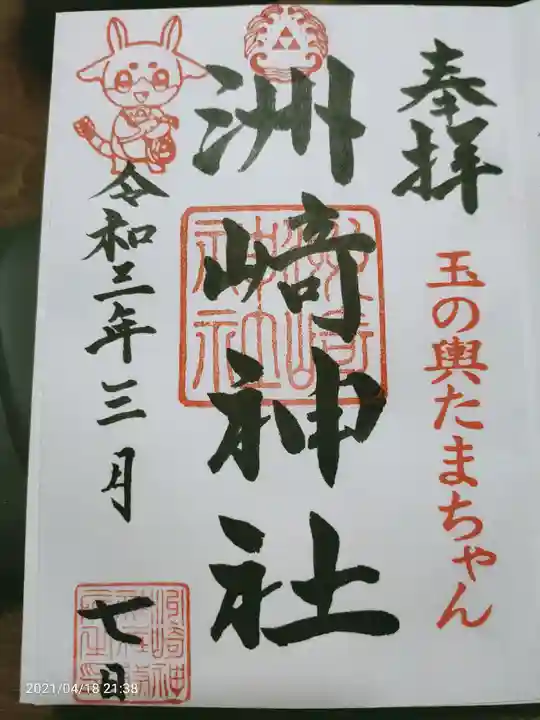 奉拝
玉の輿たまちゃん
洲崎神社
洲崎神社
令和三年三月
七日
2021/04/18 21:38